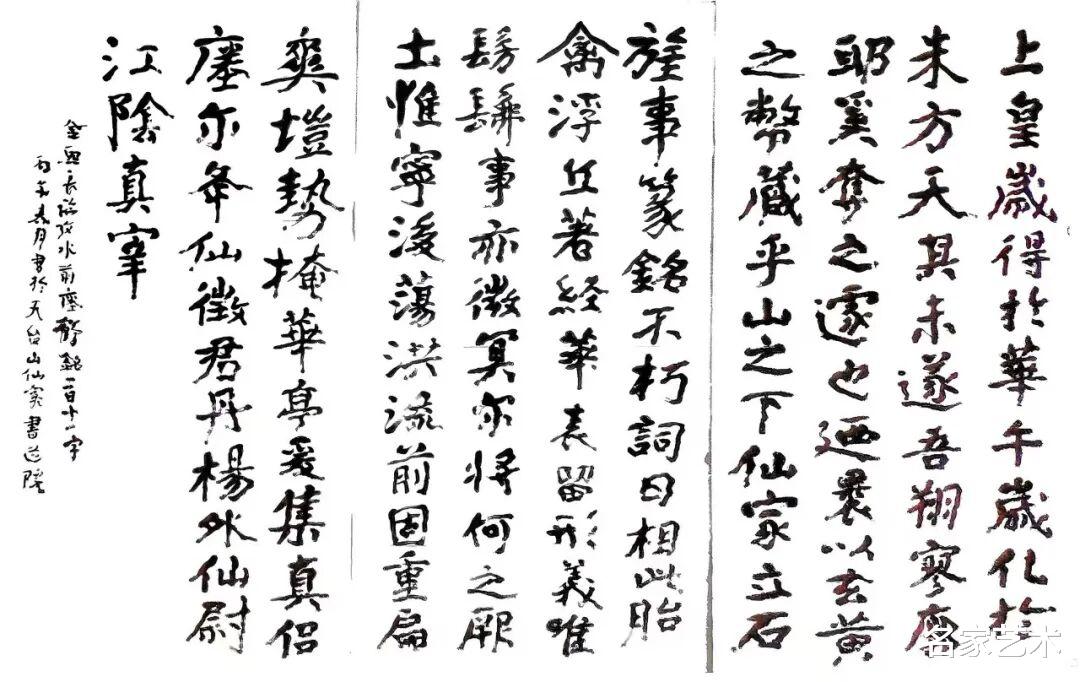 上皇歲得於華午歲化於
朱方天其未遂吾翔寥廓
耶奚奪之遽也廼裹以玄黄
之幣藏乎山之下仙家立石
旌事篆銘不朽詞曰相此胎
禽浮丘著經華表留形義唯
髣髴事亦微冥尔將何之厥
土惟寧後蕩洪流前固重扃
爽塏勢掩華亭爰集真侣
瘞尔年仙徵君丹楊外仙尉
江陰真宰
水前瘞鶴銘一百十一字
丙午春月書於天台山仙窟書道院
名家艺术